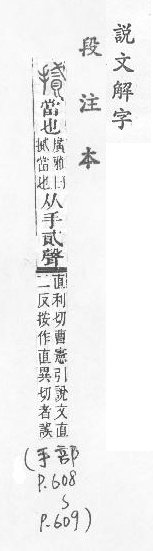 說文解字
段注本
𢷋當也廣雅曰𢷋當也从手貳聲直利切曹憲引說文直二反按作直異切者誤
(手部
P.608
S
P.609)